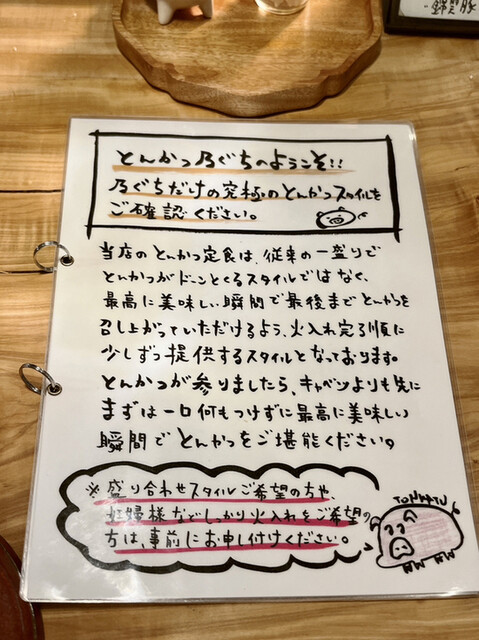 錦雲豚
とんかつ乃ぐちへようこそ!!
乃ぐちだけの究極のとんかつスタイルを
ご確認ください。
当店のとんかつ定食は、従来の一盛りで
とんかつがドーンとくるスタイルではなく、
最高に美味しい瞬間で最後までとんかつを
召し上がっていただけるよう、火入れ完了順に
少しずつ提供するスタイルとなっております。
とんかつが参りましたら、キャベツよりも先に
まずは一口何もつけずに最高に美味しい
瞬間でとんかつをご堪能ください。
※盛り合わせスタイルご希望の方や、
妊婦様などしっかり火入れをご希望の
方は、事前にお申し付けください。
TONKATU